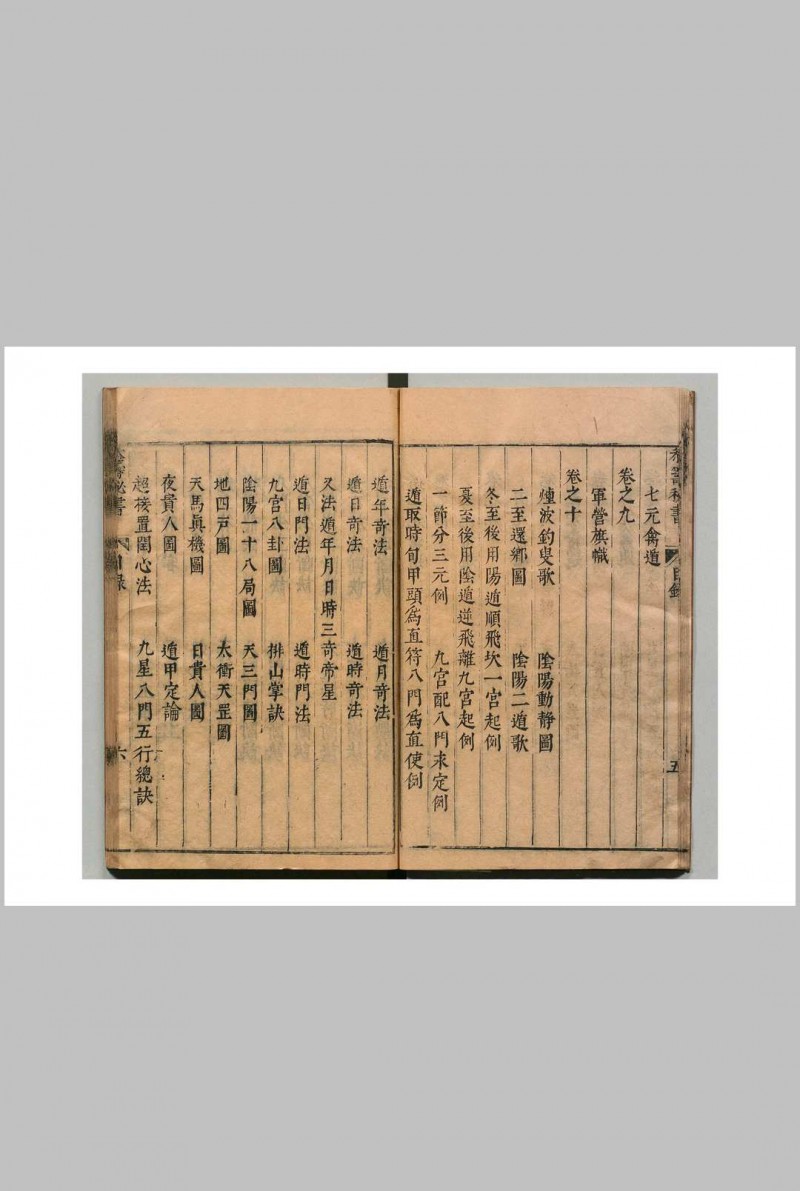 七元禽遁
卷之九
軍營旗幟
卷之十
煙波釣叟歌 陰陽動靜圖
二至還鄉圖 陰陽二遁歌
冬至後用陽遁順飛坎一宮起例
夏至後用陰遁逆飛離九宮起例
一節分三元例 九宮配八門求定例
遁取時旬甲頭爲直符八門爲直使例
五
遁年奇法 遁月奇法
遁日奇法 遁時奇法
又法遁年月日時三奇帝星
遁日門法 遁時門法
九宮八卦圖 排山掌訣
陰陽一十八局圖 天三門圖
地四戸圖 太衝天罡圖
天馬眞機圖 日貴人圖
夜貴人圖 遁甲定論
超接置閏心法 九星八門五行總訣
秘書 目錄 六